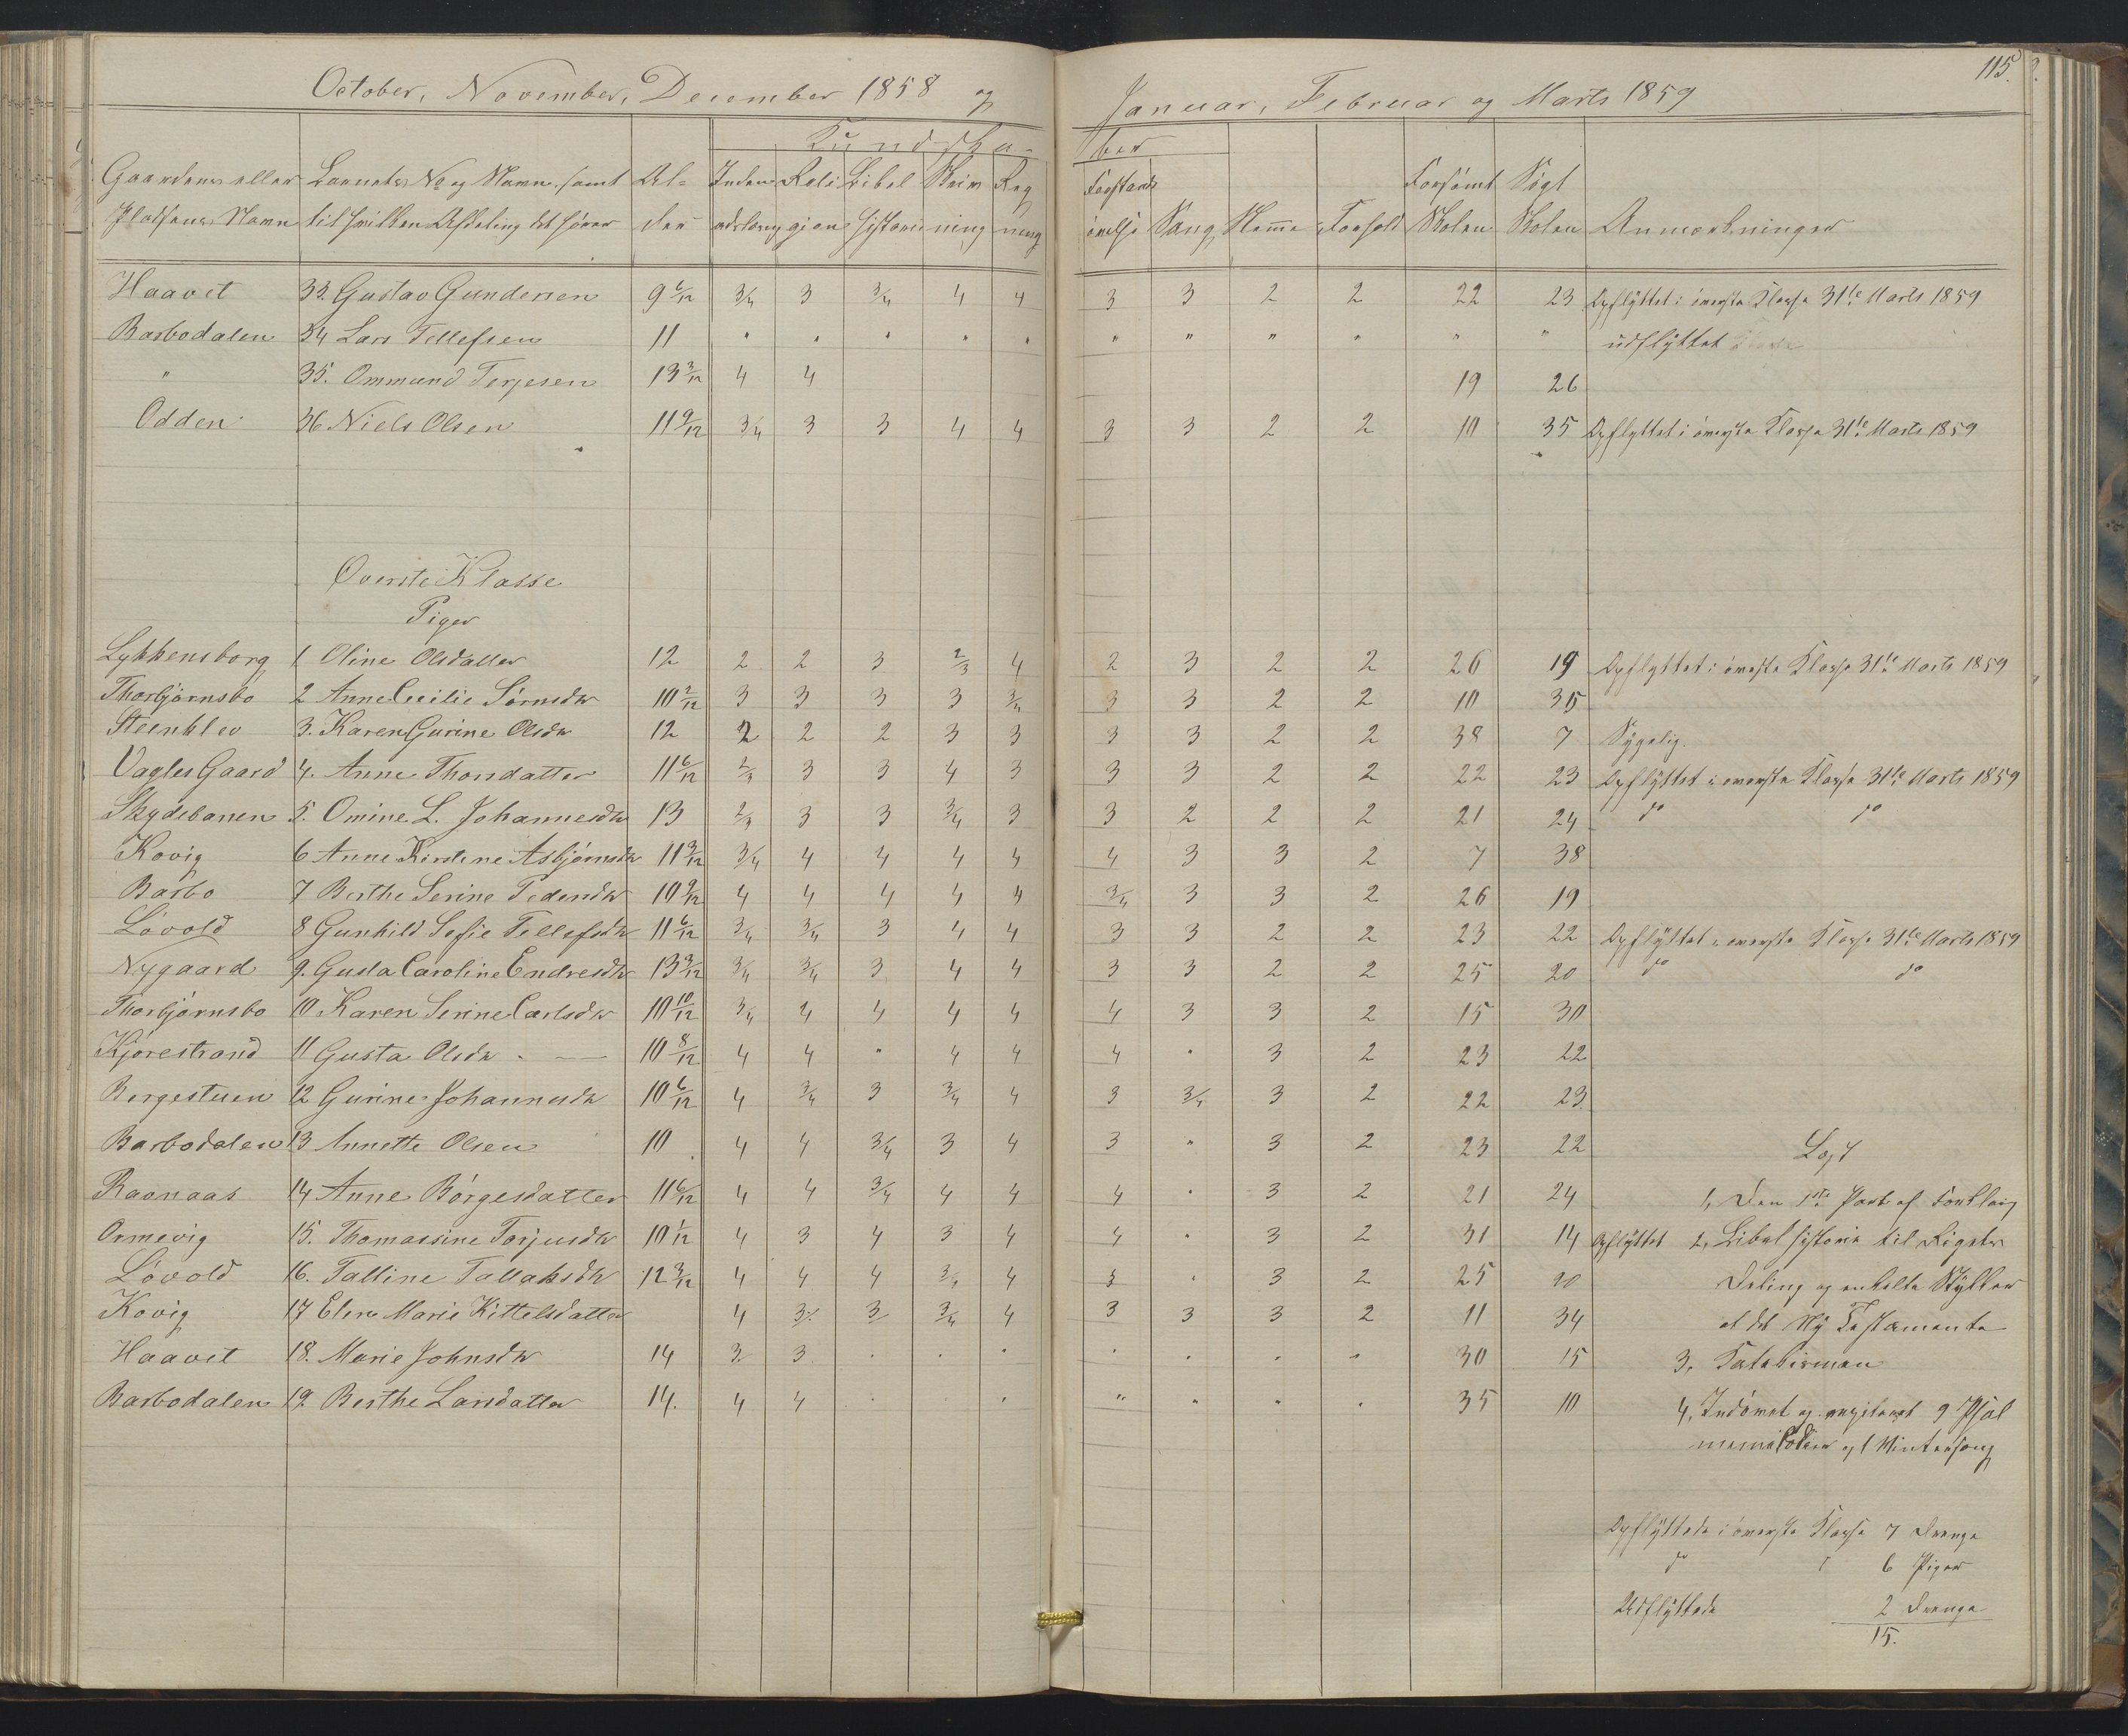 115.
October, November, December 1858 og Januar, Februar og Marts 1859
Kundska- ber
Gaardens eller Barnets No og Navn samt Al- Inden Reli Bibel Skriv Reg Forstands Forsömt Sögt
Pladsens Navn til hvilken Afdeling det hörer der adslæsng gion historie ning ning övelse Sang Nemme Forhold Skolen Skolen Anmærkninger
Haavet 33. Gustav Gundersen 9 6/12 3/4 3 3/4 4 4 3 3 2 2 22 23 Opflyttet i överste Klasse 31te Marts 1859
Barbodalen 34 Lars Tellefsen 11 " " " " " " " " " " " udflyttet
" 35. Ommund Terjesen 13 3/12 4 4 19 26
Odden 36 Niels Olsen 11 9/12 3/4 3 3 4 4 3 3 2 2 10 35 Opflyttet i överste Klasse 31te Marts 1859
Överste Klasse
Piger
Lykkensborg 1 Oline Olsdatter 12 2 2 3 2/3 4 2 3 2 2 26 19 Opflyttet i överste Klasse 31te Marts 1859
Thorbjörnsbo 2 Anne Cecilie Sörnsdtr 10 2/12 3 3 3 3 3/4 3 3 2 2 10 35
Steenklev 3. Karen Gurine Olsdtr 12 2 2 2 3 3 3 3 2 2 38 7 Sygelig.
Vagles Gaard 4. Anne Thorsdatter 11 6/12 2/3 3 3 4 3 3 3 2 2 22 23 Opflyttet i överste Klasse 31te Marts 1859
Skydebanen 5. Omine L. Johannesdtr 13 2/3 3 3 3/4 3 3 2 2 2 21 24 do do
Kovig 6 Anne Kirstine Asbjörnsdtr 11 3/12 3/4 4 4 4 4 4 3 3 2 7 38
Barbo 7 Berthe Serine Pedersdtr 10 9/12 4 4 4 4 4 3/4 3 3 2 26 19
Lövold 8 Gunhild Sofie Tellefsdtr 11 6/12 3/4 3/4 3 4 4 3 3 2 2 23 22 Opflyttet i överste Klasse 31te Marts 1859
Nygaard 9. Gusta Caroline Endresdtr 13 3/12 3/4 3/4 3 4 4 3 3 2 2 25 20 do do
Thorbjörnsbo 10 Karen Serine Carlsdtr 10 10/12 3/4 4 4 4 4 4 3 3 2 15 30
Kjörestrand 11 Gusta Olsdtr 10 8/12 4 4 " 4 4 4 " 3 2 23 22
Bergestuen 12 Gurine Johannesdtr 10 6/12 4 3/4 3 3/4 4 3 3/4 3 2 22 23
Barbodalen 13 Annette Olsen 10 4 4 3/4 3 4 3 " 3 2 23 22
Læst
Ravnaas 14 Anne Börgesdatter 11 6/12 4 4 3/4 4 4 4 " 3 2 21 24 1, Den 1ste Part af Forklarg
Ormevig 15. Thomassine Torjusdtr 10 1/12 4 3 4 3 4 4 " 3 2 31 14 Opflyttet 2, Bibelhistorie til Rigets
Lövold 16. Talline Tallaksdtr 12 3/12 4 4 4 3/4 4 3 " 3 2 25 20 Deling og enkelte Stykker
Kovig 17 Elen Marie Kittelsdatter 4 3/4 3 3/4 4 3 3 3 2 11 34 af det Ny Testamente
Haavet 18. Marie Johnsdtr 14 3 3 " " " " " " " 30 15 3, Katekismen
Barbodalen 19 Berthe Larsdatter 14. 4 4 " " " " " " " 35 10 4, Indövet og 9 Psal
memelodier og 1 Vintersang
Opflyttede i överste Klasse 7 Drenge
do 6 Piger
Udflyttede 2 Drenge
15.